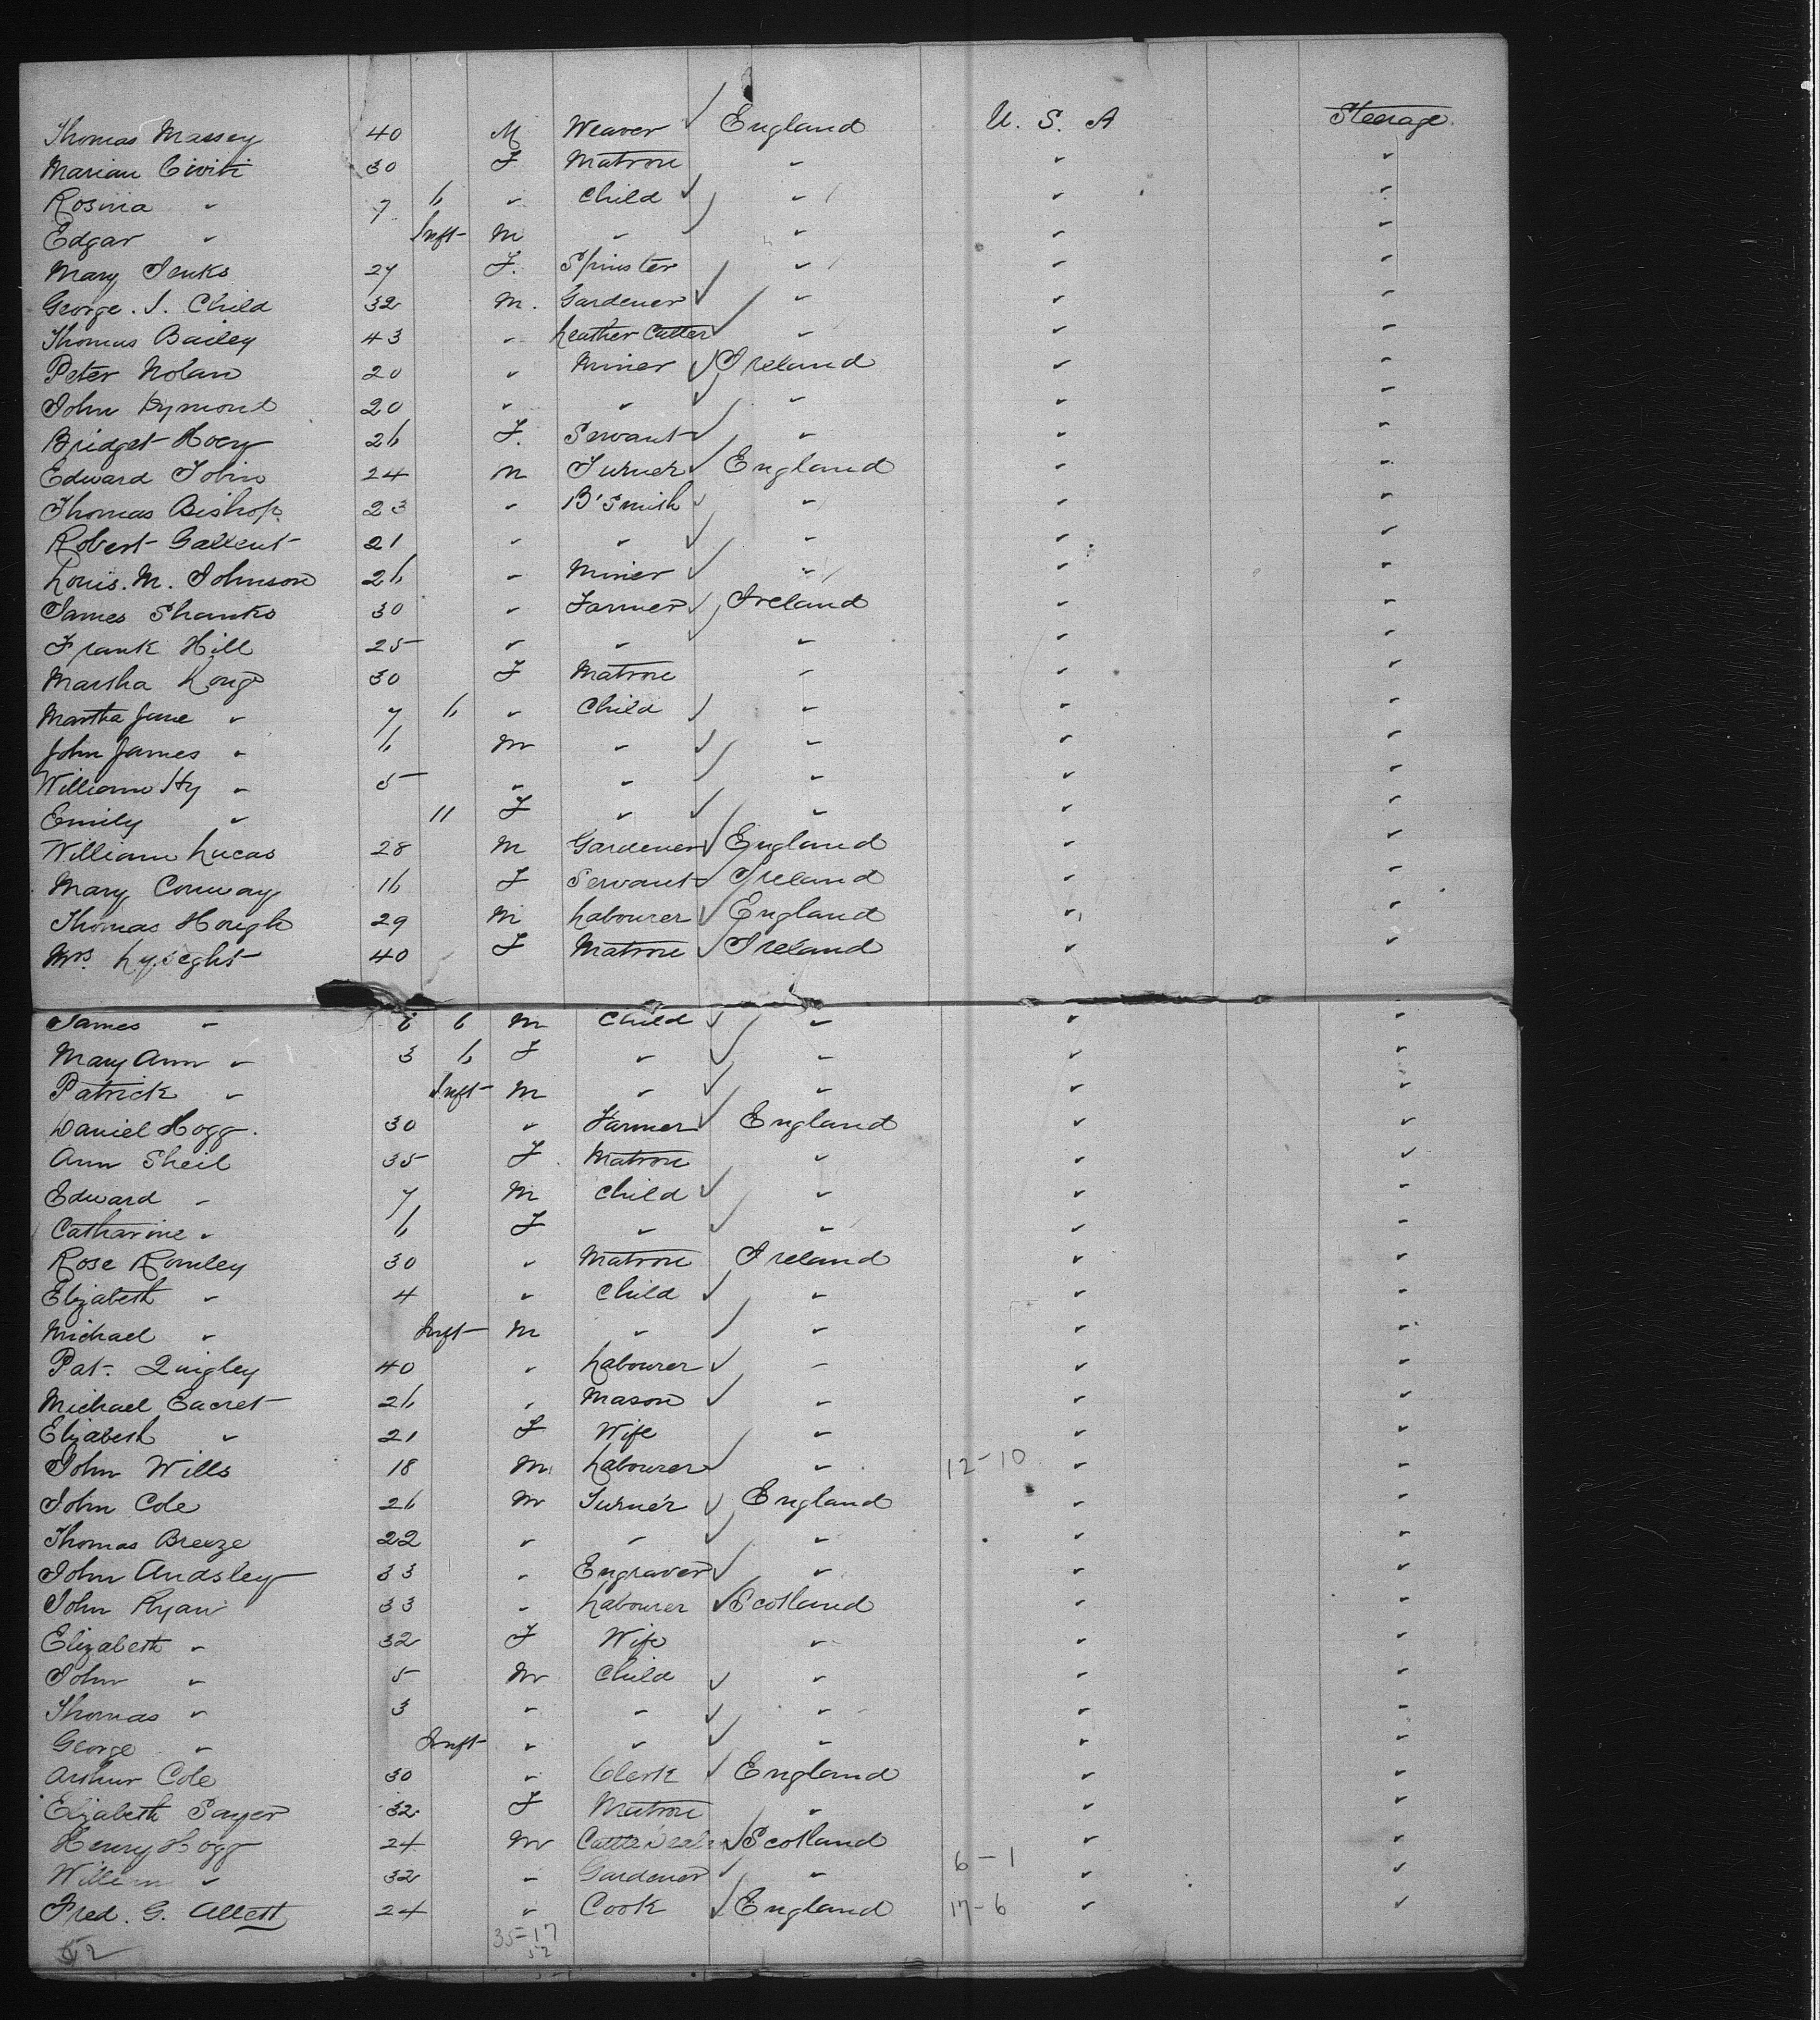 Thomas Massey 40 M Weaver England U. S. A Steerage
Marian Civiti 30 F Matron " " "
Rosina " 7 6 " Child " " "
Edgar " Inft M " " " "
Mary Jenks 27 F. Spinster " " "
George. J. Child 32 M. Gardener " " "
Thomas Bailey 43 " Leather Cutter " " "
Peter Nolan 20 " Miner Ireland " "
John Dymont 20 " " " " "
Bridget Hoey 26 F. Servant " " "
Edward Tobin 24 M Turner England " "
Thomas Bishop 23 " B'Smith " " "
Robert 21 " " " " "
Louis. M. Johnson 26 " Miner " " "
James Shanks 30 " Farmer Ireland " "
Frank Hill 25 " " " " "
Martha Long 30 F Matron " " "
Martha Jane " 7 6 " Child " " "
John James " 6 M " " " "
William Hy " 5 " " " " "
Emily " 11 F " " " "
William Lucas 28 M Gardener England " "
Mary Conway 16 F Servant Ireland " "
Thomas Hough 29 M Labourer England " "
Mrs. Lyseght 40 F Matron Ireland " "
James " 6 6 M Child " " "
Mary Ann " 3 6 F " " " "
Patrick " Inft M " " " "
Daniel Hogg. 30 " Farmer England " "
Ann Sheil 35 F. Matron " " "
Edward " 7 M Child " " "
Catharine " 6 F " " " "
Rose Romley 30 " Matron Ireland " "
Elizabeth " 4 " Child " " "
Michael " Inft M " " " "
Pat. Quigley 40 " Labourer " " "
Michael Eacret 26 " Mason " " "
Elizabeth " 21 F Wife " " "
John Wills 18 M Labourer " 12-10 " "
John Cole 26 M Turner England " "
Thomas Breeze 22 " " " " "
John Audsley 33 " Engraver " " "
John Ryan 33 " Labourer Scotland " "
Elizabeth " 32 F Wife " " "
John " 5 M Child " " "
Thomas " 3 " " " " "
George " Inft " " " " "
Arthur Cole 30 " Clerk England " "
Elizabeth Sayer 32 F Matron " " "
Henry Hogg 24 M Cattle Dealer Scotland " "
William " 32 " Gardener " 6-1 " "
Fred. G. Allett 24 " Cook England 17-6 " "
52 35-17
52